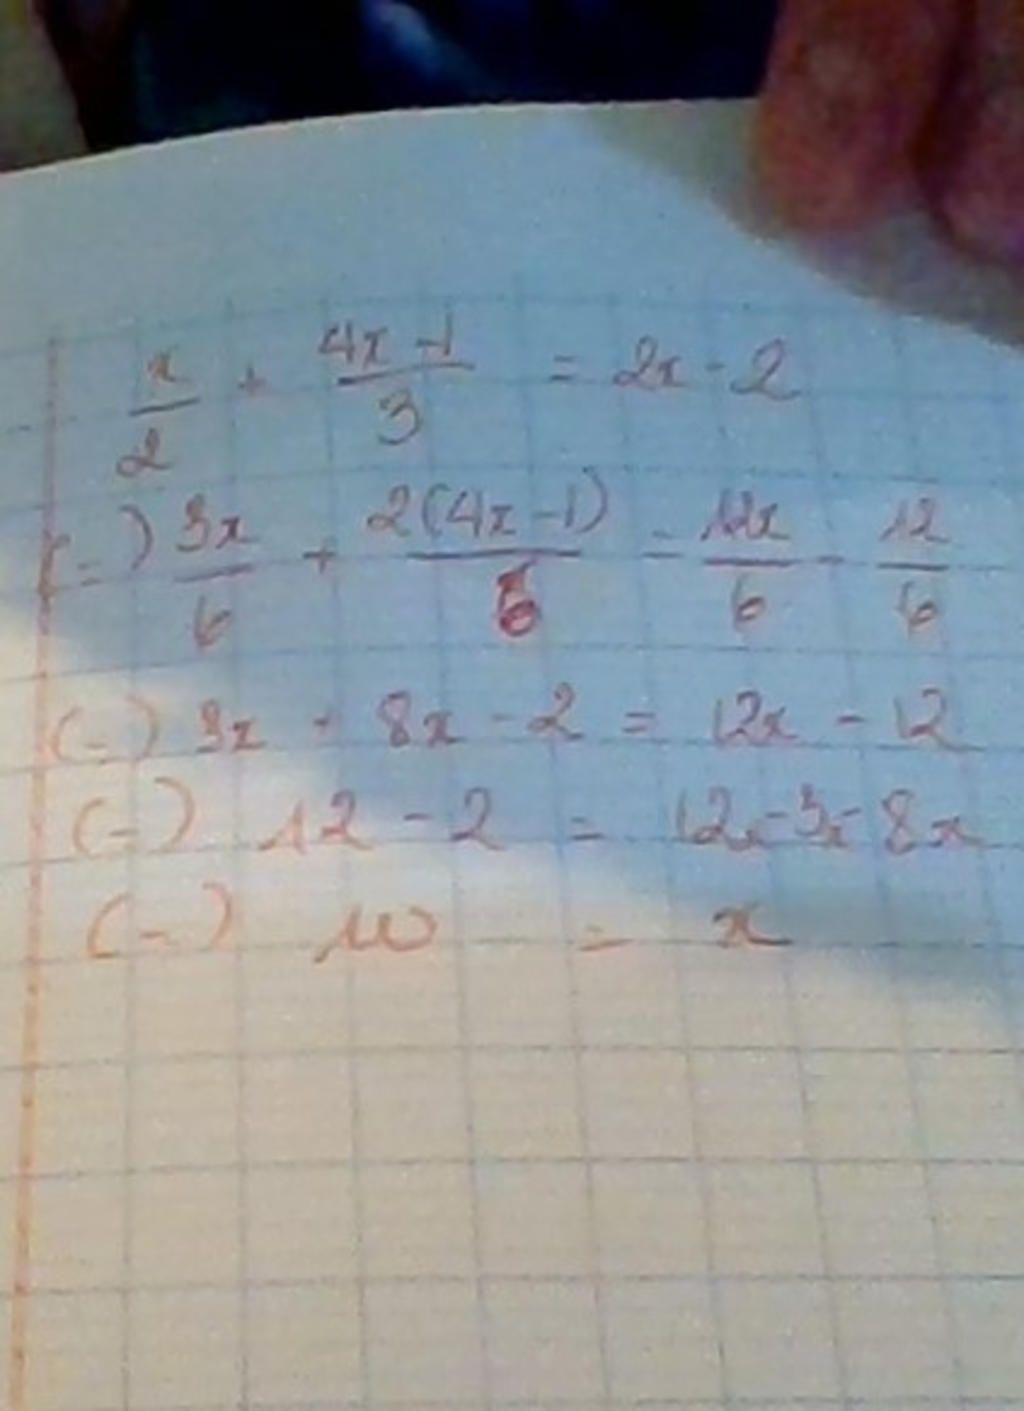 x/2 + (4x-1)/3 = 2x - 2
(=) 3x/6 + 2(4x-1)/6 = 12x/6 - 12/6
(=) 3x + 8x - 2 = 12x - 12
(=) 12 - 2 = 12x - 3x - 8x
(=) 10 = x